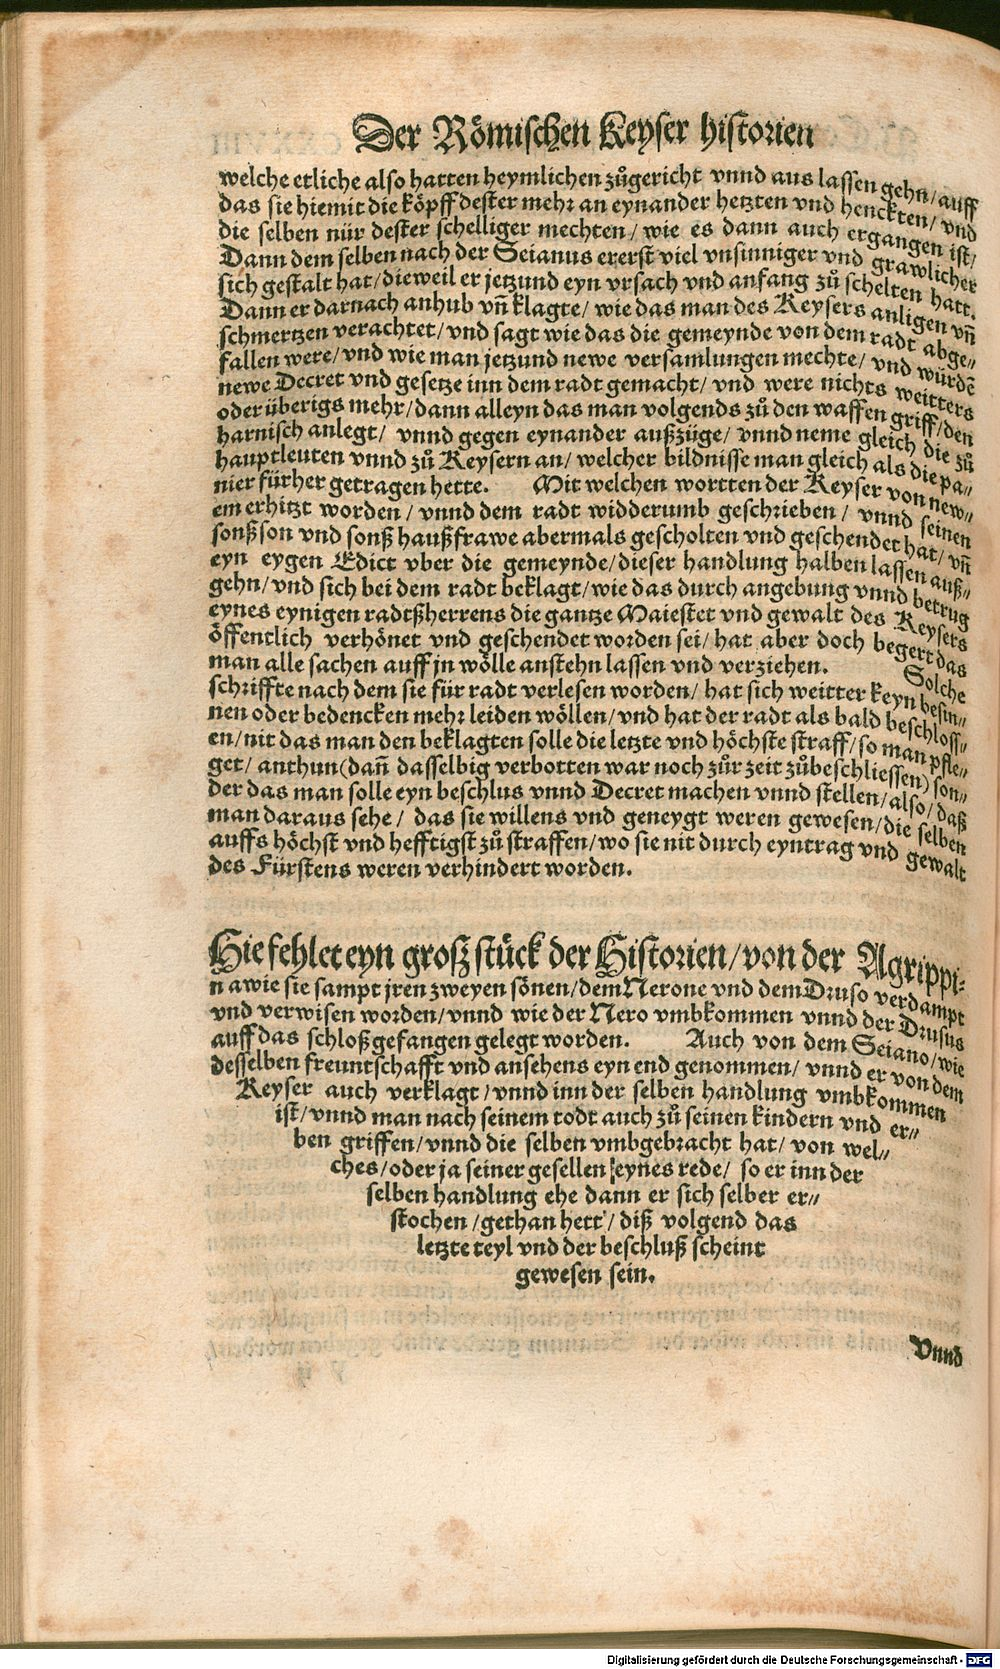 Der Römischen Keyser historien
welche etliche also hatten heymlichen zůgericht vnnd aus lassen gehn/auff
das sie hiemit die köpff dester mehr an eynander hetzten vnd henckten/vnd
die selben nür dester schelliger mechten/ wie es dann auch ergangen ist/
Dann dem selben nach der Seianus ererst viel vnsinniger vnd grawlicher
sich gestalt hat/dieweil er jetzund eyn vrsach vnd anfang zů schelten hatt.
Dann er darnach anhub vñ klagte/ wie das man des Keysers anligen vñ
schmertzen verachtet/vnd sagt wie das die gemeynde von dem radt abge⸗
fallen were/vnd wie man jetzund newe versamlungen mechte/ vnd würdē
newe Decret vnd gesetze inn dem radt gemacht/ vnd were nichts weitters
oder überigs mehr/dann alleyn das man volgends zů den waffen griff/den
harnisch anlegt/ vnnd gegen eynander außzüge/ vnnd neme gleich die zů
hauptleuten vnnd zů Keysern an/ welcher bildnisse man gleich als die pa⸗
nier fürher getragen hette. Mit welchen wortten der Keyser von new⸗
em erhitzt worden/ vnnd dem radt widderumb geschrieben/ vnnd seinen
sonßson vnd sonß haußfrawe abermals gescholten vnd geschendet hat/vñ
eyn eygen Edict vber die gemeynde/dieser handlung halben lassen auß⸗
gehn/vnd sich bei dem radt beklagt/wie das durch angebung vnnd betrug
eynes eynigen radtßherrens die gantze Maiestet vnd gewalt des Keysers
öffentlich verhönet vnd geschendet worden sei/hat aber doch begert das
man alle sachen auff jn wölle anstehn lassen vnd verziehen. Solche
schriffte nach dem sie für radt verlesen worden/ hat sich weitter keyn besin⸗
nen oder bedencken mehr leiden wöllen/vnd hat der radt als bald beschloss⸗
en/nit das man den beklagten solle die letzte vnd höchste straff/so man pfle⸗
get/ anthun(dañ dasselbig verbotten war noch zůr zeit zůbeschliessen) son⸗
der das man solle eyn beschlus vnnd Decret machen vnnd stellen/also/daß
man daraus sehe/ das sie willens vnd geneygt weren gewesen/die selben
auffs höchst vnd hefftigst zů straffen/wo sie nit durch eyntrag vnd gewalt
des Fürstens weren verhindert worden.
Hie fehlet eyn groß stück der Historien/von der Agrippi⸗
n awie sie sampt jren zweyen sönen/dem Nerone vnd dem Druso verdampt
vnd verwisen worden/vnnd wie der Nero vmbkommen vnnd der Drusus
auff das schloß gefangen gelegt worden. Auch von dem Seiano/wie
desselben freuntschafft vnd ansehens eyn end genommen/ vnnd er von dem
Keyser auch verklagt/vnnd inn der selben handlung vmbkommen
ist/vnnd man nach seinem todt auch zů seinen kindern vnd er⸗
ben griffen/vnnd die selben vmbgebracht hat/ von wel⸗
ches/oder ja seiner gesellen eynes rede/ so er inn der
selben handlung ehe dann er sich selber er⸗
stochen/gethan hett/ diß volgend das
letzte teyl vnd der beschluß scheint
gewesen sein.
Vnnd
Digitalisierung gefördert durch die Deutsche Forschungsgemeinschaft - DFG